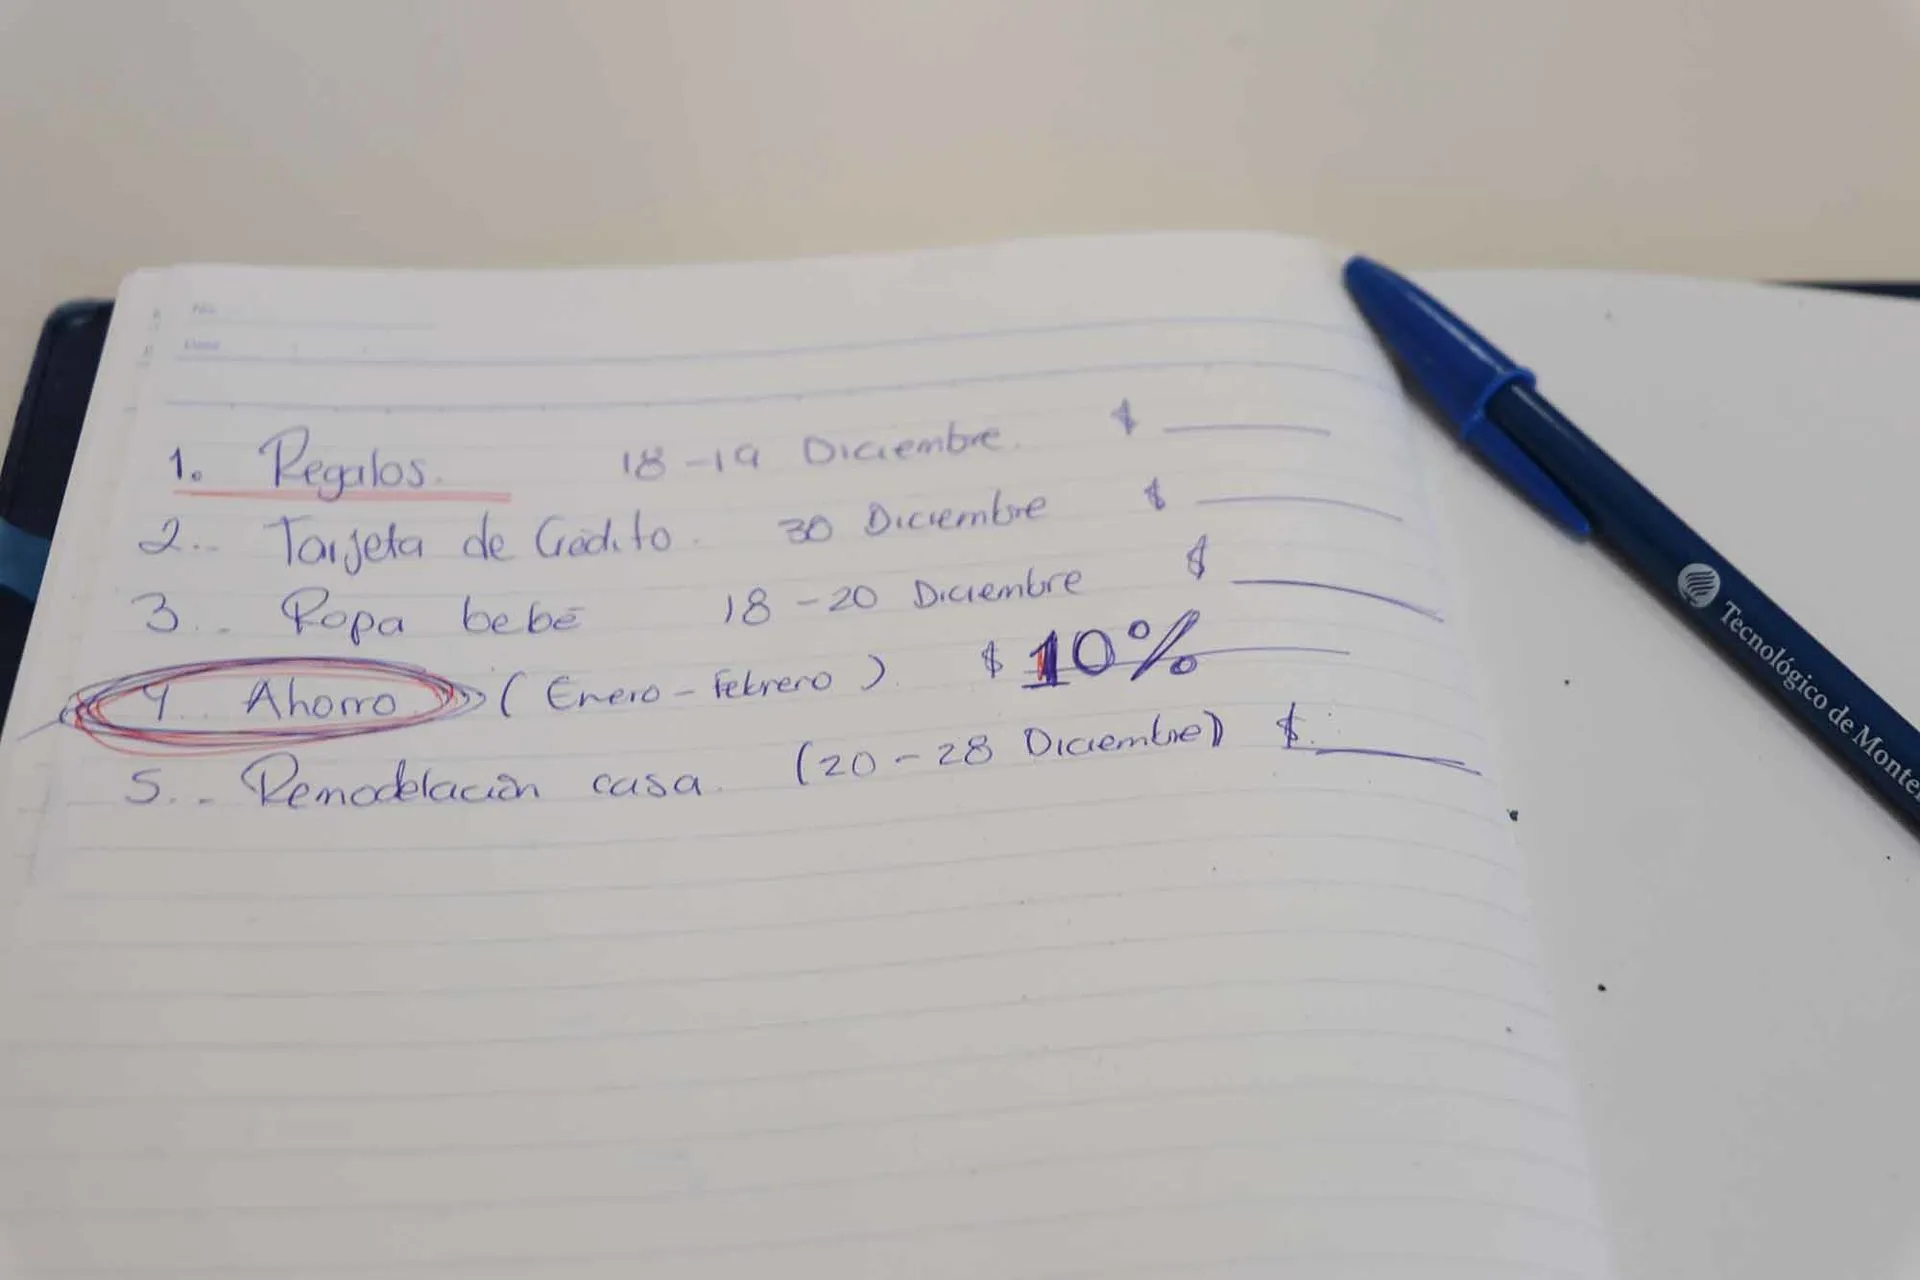 1. Regalos. 18-19 Diciembre. $
2.- Tarjeta de Crédito. 30 Diciembre $
3.- Ropa bebé 18-20 Diciembre $
4.- Ahorro (Enero-Febrero) $ 10%
5.- Remodelación casa. (20-28 Diciembre) $
Tecnológico de Monte